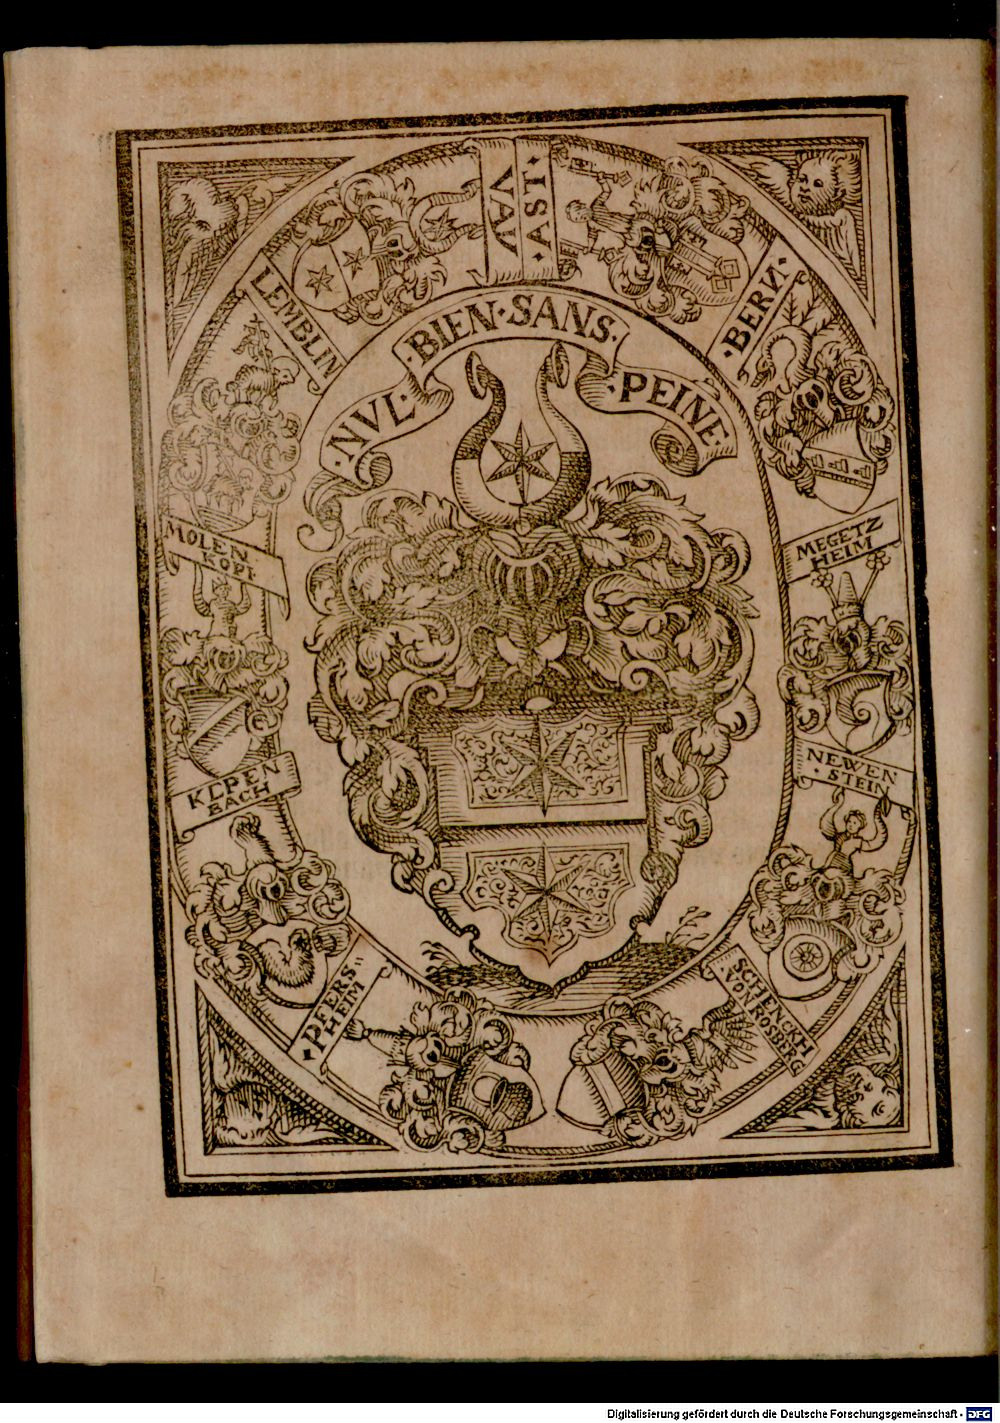 VAV
·AST·
LEMBLIN
·BERN·
·NVL·
·BIEN·SANS·
·PEINE·
MOLEN
KOPF
MEGETZ
HEIM
KLPEN
BACH
NEWEN
·STEIN
DFERS"
HEIM
SCHENCKH
VON ROSN
BERG
Digitalisierung gefördert durch die Deutsche Forschungsgemeinschaft - DFG